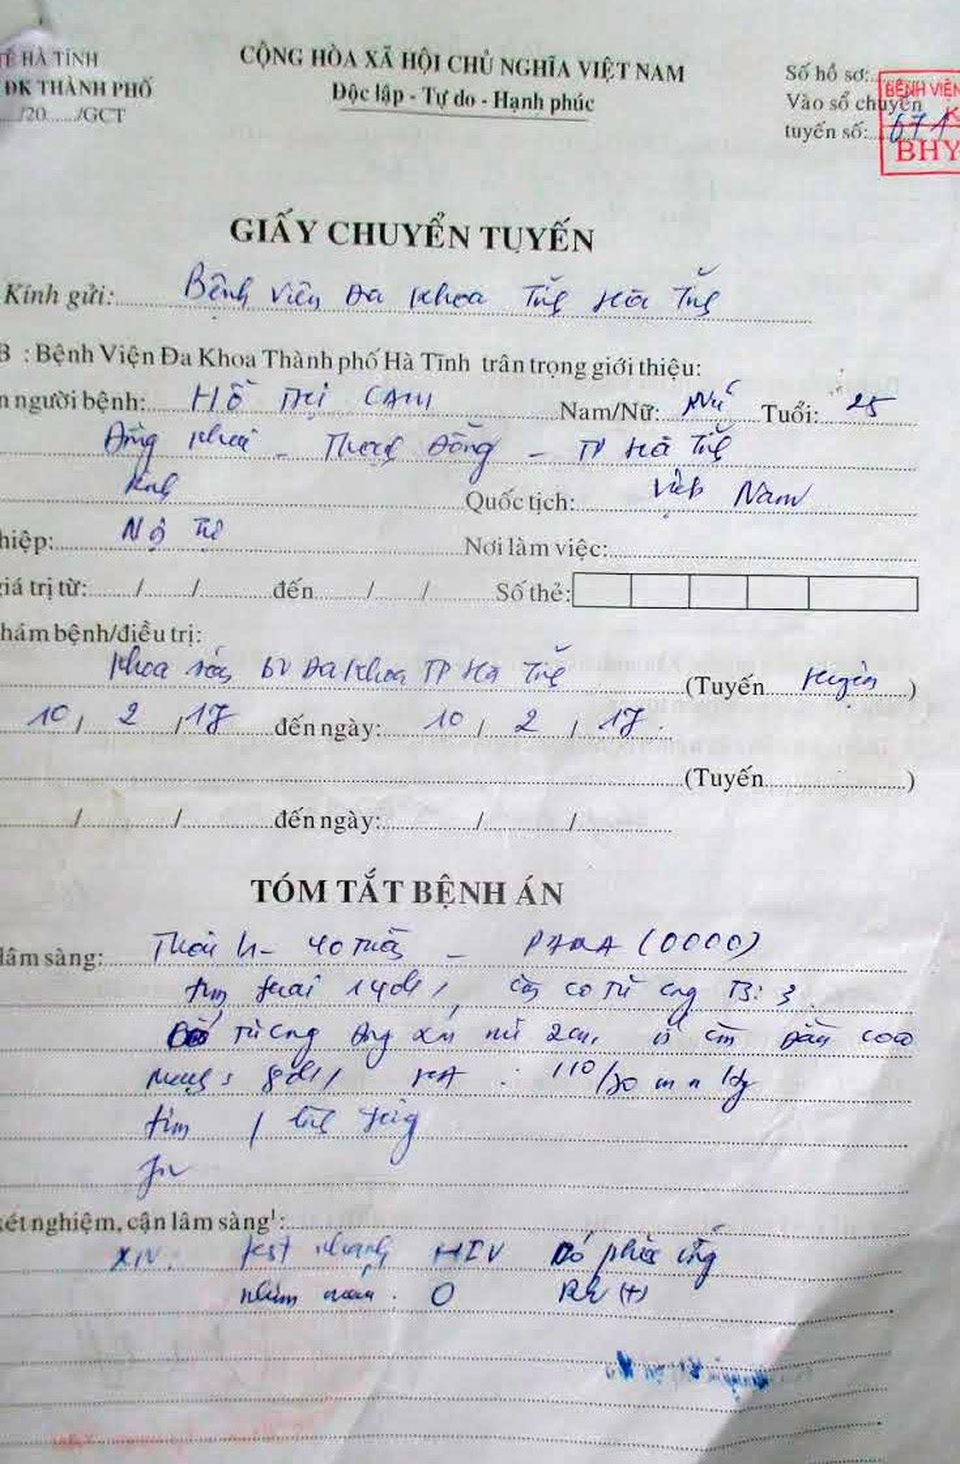 TẾ HÀ TĨNH
ĐK THÀNH PHỐ
/20....../GCT
CỘNG HÒA XÃ HỘI CHỦ NGHĨA VIỆT NAM
Độc lập - Tự do - Hạnh phúc
Số hồ sơ:
Vào sổ chuyển
tuyến số: 671
BỆNH VIỆN
K
BHY
GIẤY CHUYỂN TUYẾN
Kính gửi: Bệnh viện Đa khoa Tỉnh Hà Tĩnh
B : Bệnh Viện Đa Khoa Thành phố Hà Tĩnh trân trọng giới thiệu:
n người bệnh: HỒ THỊ CAM Nam/Nữ: Nữ Tuổi: 25
Đồng - Thạch Đồng - TP Hà Tĩnh
Kinh Quốc tịch: Việt Nam
hiệp: Nội Trợ Nơi làm việc:
iá trị từ: / / đến / / Số thẻ:
hám bệnh/điều trị:
Khoa sản BV Đa khoa TP Hà Tĩnh (Tuyến Huyện)
10 / 2 / 17 đến ngày: 10 / 2 / 17
(Tuyến )
/ / đến ngày: / /
TÓM TẮT BỆNH ÁN
lâm sàng: Thai 40 tuần - PARA (0000)
tim thai co TC 3
2cm, cao
HA : 110/ mmHg
tim
xét nghiệm, cận lâm sàng¹:
XN: test nhanh HIV Có phản ứng
nhóm máu: O Rh (+)